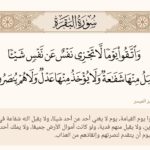 سُورَةُ البَقَرَةِ
وَاتَّقُوا يَوْمًا لَّا تَجْزِي نَفْسٌ عَن نَّفْسٍ شَيْئًا
بَلُ مِنْهَا شَفَاعَةٌ وَلَا يُؤْخَذُ مِنْهَا عَدْلٌ وَلَا هُمْ يُنصَرُو
الميسر
وا يوم القيامة، يوم لا يغني أحد عن أحد شيئًا، ولا يقبل الله شفاعة في
ين، ولا يقبل منهم فدية، ولو كانت أموال الأرض جميعًا، ولا يملك أحد
يوم أن يتقدم لنصرتهم وإنقاذهم من العذاب.